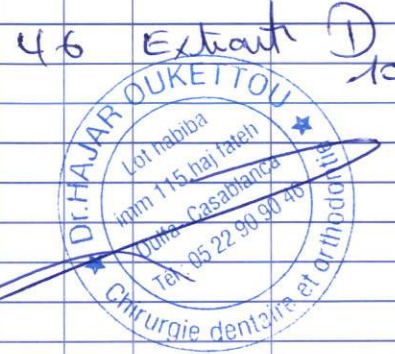 46 Extrait D
10
Dr.HAJAR OUKETTOU
Lot habiba
imm 115 haj fateh
Oulfa - Casablanca
Tél: 05 22 90 90 46
Chirurgie dentaire et orthodontie